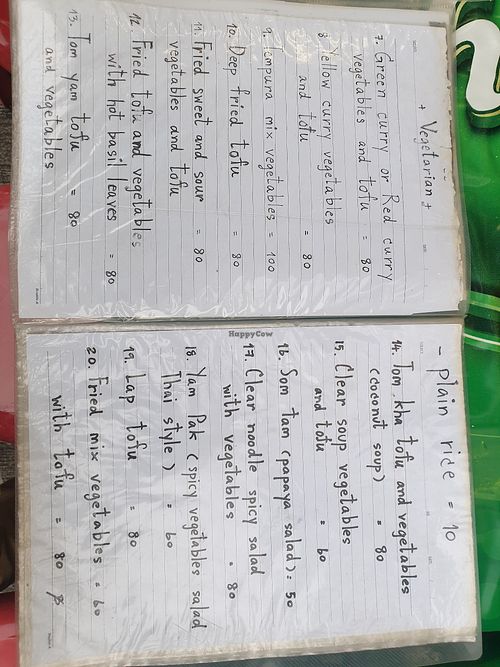 + Vegetarian +
7. Green curry or Red curry
vegetables and tofu = 80
8. Yellow curry vegetables
and tofu = 80
9. Tempura mix vegetables = 100
10. Deep fried tofu = 80
11. Fried sweet and sour = 80
vegetables and tofu
12. Fried tofu and vegetables
with hot basil leaves = 80
13. Tom yam tofu = 80
and vegetables
- plain rice = 10
14. Tom kha tofu and vegetables
(coconut soup) = 80
15. Clear soup vegetables
and tofu = 60
16. Som Tam (papaya salad) = 50
17. Clear noodle spicy salad
with vegetables = 80
18. Yam Pak (spicy vegetables salad
Thai style) = 60
19. Lap tofu = 80
20. Fried mix vegetables = 60
with tofu = 80 ฿
HappyCow